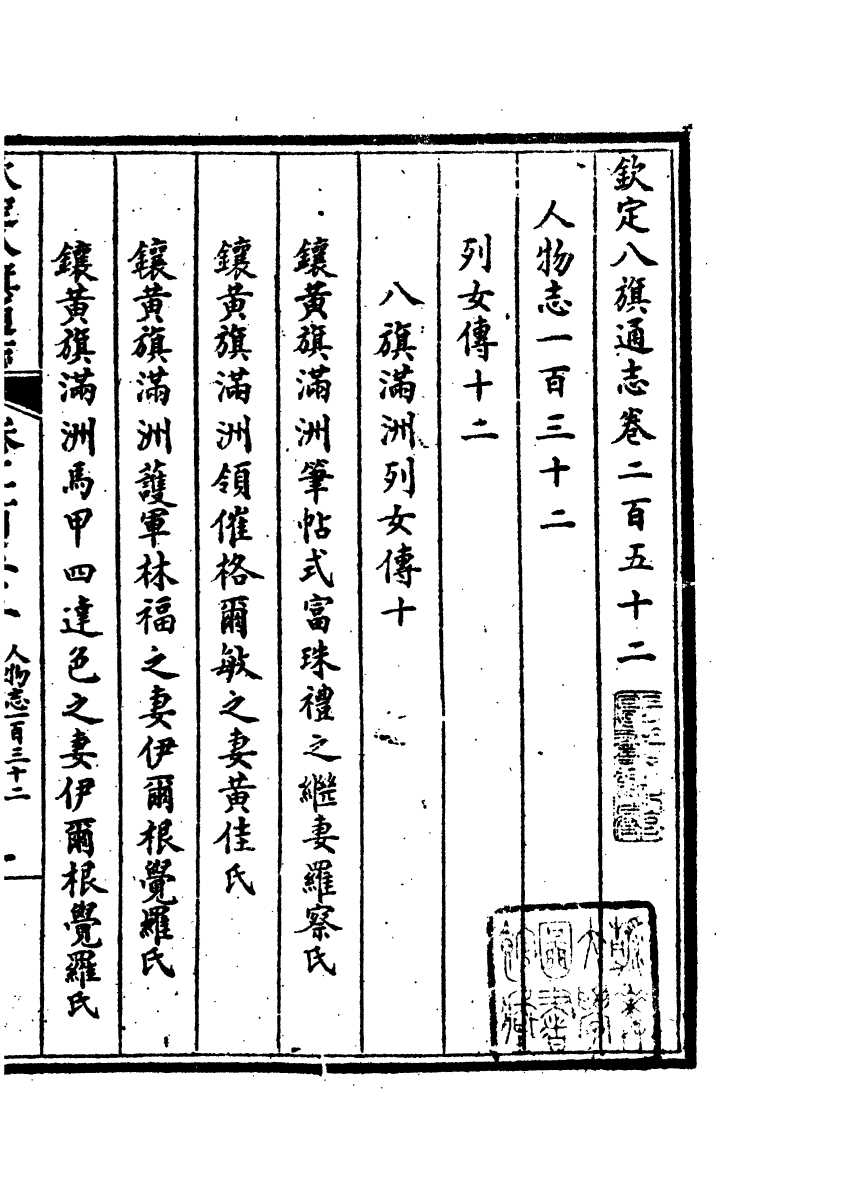 欽定八旗通志卷二百五十二
人物志一百三十二
列女傳十二
八旗滿洲列女傳十
鑲黃旗滿洲筆帖式富珠禮之繼妻羅察氏
鑲黃旗滿洲領催格爾敏之妻黃佳氏
鑲黃旗滿洲護軍林福之妻伊爾根覺羅氏
鑲黃旗滿洲馬甲四達色之妻伊爾根覺羅氏
人物志一百三十二